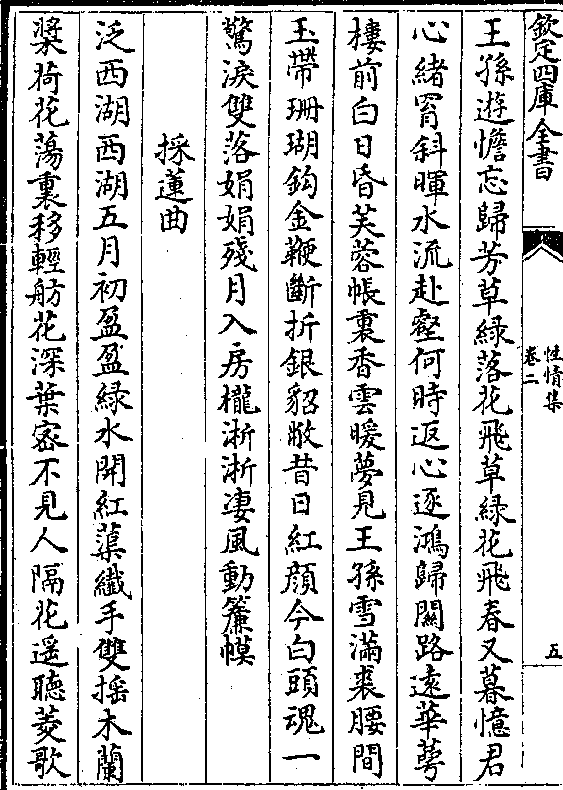 欽定四庫全書
性情集
卷二
五
王孫遊憺忘歸芳草綠落花飛草緑花飛春又暮憶君
心緒窅斜暉水流赴壑何時返心逐鴻歸關路遠華萼
樓前白日昏芙蓉帳裏香雲暖夢見王孫雪滿裘腰間
玉帶珊瑚鈎金鞭斷折銀貂敝昔日紅顔今白頭魂一
驚淚雙落娟娟殘月入房櫳淅淅凄風動簾幙
採蓮曲
泛西湖西湖五月初盈盈緑水開紅蕖纖手雙揺木蘭
槳荷花蕩裏移輕舫花深葉宻不見人隔花遥聽菱歌